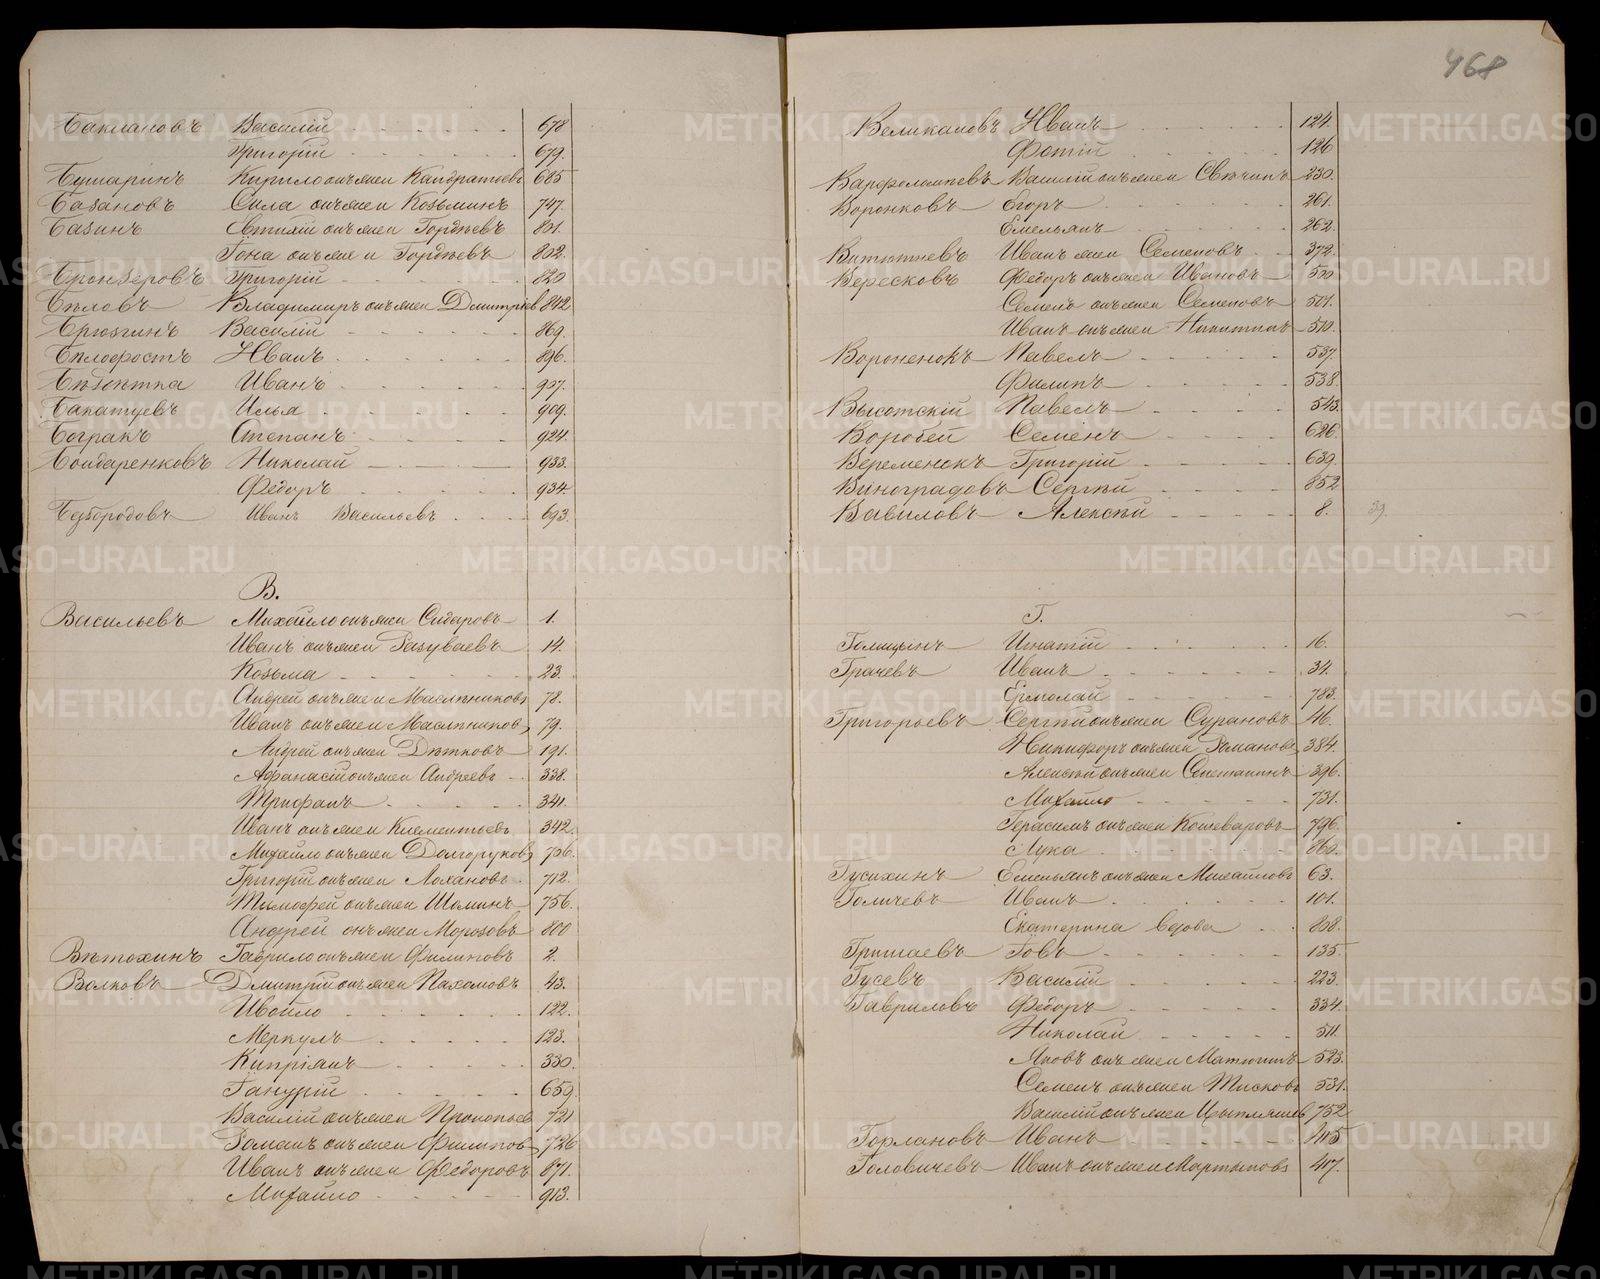 Баклановъ Василій 678
Григорій 679.
Бушаринъ Кирило онъ же и Кандратьевъ 685
Базановъ Сила онъ же и Козьминъ 747.
Базинъ Евтихій онъ же и Гордѣевъ 801.
Іона онъ же и Гордѣевъ 802.
Бронзеровъ Григорій 820
Бѣловъ Владимиръ онъ же и Дмитріев 842
Брюзгинъ Василій 869.
Бѣлофростъ Иванъ 896.
Иванъ 907.
Бакатуевъ Илья 909.
Богракъ Степанъ 924.
Бондаренковъ Николай 933.
Федоръ 934.
Безбородовъ Иванъ Васильевъ 693.
В.
Васильевъ Михайло онъ же и Сидоровъ 1.
Иванъ онъ же и Разуваевъ 14.
Козьма 23.
Андрей онъ же и Маслянниковъ 78.
Иванъ онъ же и Маслянников 79.
Андрей онъ же и Дѣтковъ 191.
Афанасій онъ же и Андреевъ 338.
Трифанъ 341.
Иванъ онъ же и Клементьевъ 342.
Михайло онъ же и Долгоруковъ 706.
Григорій онъ же и Лохановъ 712.
Тимофей онъ же и Шоминъ 756.
Андрей онъ же и Морозовъ 800
Вѣтохинъ Гаврило онъ же и Филиповъ 2.
Волковъ Дмитрій онъ же и Пахомовъ 43.
Ивойло 122.
Меркулъ 123.
Кипріянъ 330.
Ганурій 659.
Василій онъ же и Прокопьев 721
Романъ онъ же и Филипов 726
Иванъ онъ же и Федоровъ 871.
Михайло 913.
468
Великановъ Иванъ 124.
Фотій 126
Варфоломѣевъ Василій онъ же и Свѣчинъ 230.
Воронковъ Егоръ 261.
Емельянъ 262.
Иванъ же и Семеновъ 372.
Вересковъ Федоръ онъ же и Ивановъ 500
Семенъ онъ же и Семеновъ 501.
Иванъ онъ же и Никитинъ 510.
Вороненокъ Павелъ 537.
Филипъ 538.
Высотскій Павелъ 543.
Воробей Семенъ 626.
Веременокъ Григорій 639.
Виноградовъ Сергѣй 852
Вавиловъ Алексѣй 8. 39.
Г.
Голицынъ Игнатій 16.
Грачевъ Иванъ 34.
Ермолай 783.
Григорьевъ Сергѣй онъ же и Сурановъ 46.
Никифоръ онъ же и Романовъ 384.
Алексѣй онъ же и Степанинъ 396.
Михайло 731.
Герасимъ онъ же и Кошеваровъ 796.
Лука 860.
Гусихинъ Емельянъ онъ же и Михайловъ 63.
Голичевъ Иванъ 101.
Екатерина вдова 808.
Гришаевъ Іовъ 135.
Гусевъ Василій 223.
Гавриловъ Федоръ 334.
Николай 511.
Яковъ онъ же и Матюшинъ 523.
Семенъ онъ же и Тисковъ 531.
Василій онъ же и Цыпляшев 752
Горлановъ Иванъ 415
Головичевъ Иванъ онъ же и Мартыновъ 417.
METRIKI.GASO-URAL.RU